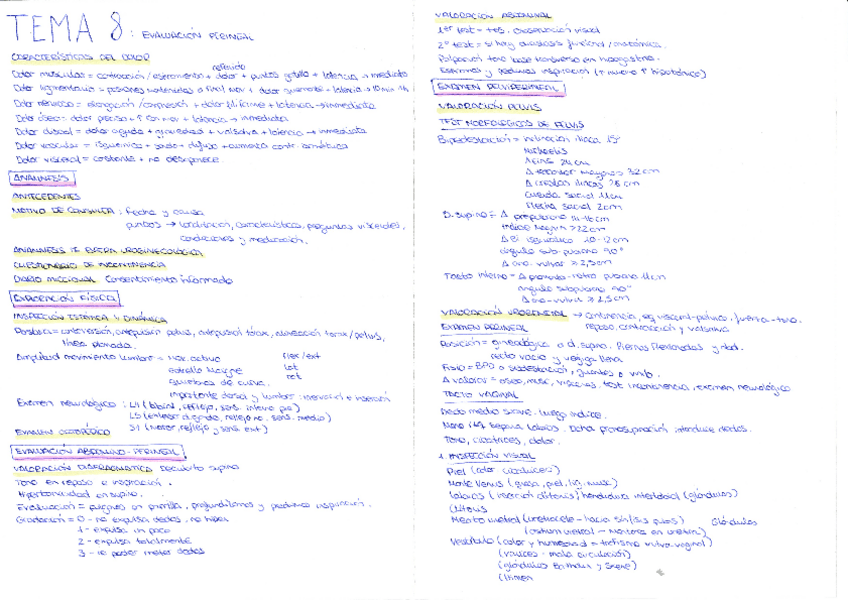 TEMA 8: EVALUACIÓN PERINEAL
CARACTERÍSTICAS DEL DOLOR
referido
Dolor muscular = contracción / estiramiento + dolor + puntos gatillo + latencia → inmediata
Dolor ligamentario = posiciones mantenidas o final mov + dolor + latencia → 10 min
Dolor nervioso = elongación / compresión + dolor filiforme + latencia → inmediata
Dolor óseo = dolor preciso + mov + latencia → inmediata
Dolor discal = dolor agudo + gravedad + valsalva + latencia → inmediata
Dolor vascular = isquémico + sordo + difuso + aumenta
Dolor visceral = constante + no desaparece.
ANAMNESIS
ANTECEDENTES
MOTIVO DE CONSULTA: Fecha y causa
puntos → localización, características, preguntas viscerales,
condiciones y medicación.
ANAMNESIS EXTRA UROGINECOLÓGICA
CUESTIONARIO DE INCONTINENCIA
DIARIO MICCIONAL Consentimiento informado
EXPLORACIÓN FÍSICA
INSPECCIÓN ESTÁTICA Y DINÁMICA
Postura = anteversión, antepulsión pelvis, antepulsión tórax, alineación tórax/pelvis,
línea plomada.
Amplitud movimiento lumbar → mov. activo flex/ext
estrella Maigne lat
rot
importante dorsal y lumbar: inervación
Examen neurológico: L4 (tibial, reflejo, sens. interno pie)
L5 (extensor dedo gordo, reflejo no, sens. medio)
S1 (motor, reflejo y sens ext)
EXAMEN ORTOPÉDICO
EVALUACIÓN ABDOMINO-PERINEAL
VALORACIÓN DIAFRAGMÁTICA Decúbito supino
Tono en reposo e inspiración.
Hipertonicidad en supino.
Evaluación = pulgares en parrilla, profundizamos y pedimos inspiración.
Gradación = 0 - no expulsa dedos, no hiper
1 - expulsa un poco
2 - expulsa totalmente
3 - no poder meter dedos
VALORACIÓN ABDOMINAL
1er test = tos. Observación visual
2º test = si hay diastasis funcional / anatómica.
Palpación tono base transverso
Estamos y pedimos inspiración (+ nuevo + hipotónico)
EXAMEN PELVIPERINEAL
VALORACIÓN PELVIS
TEST MORFOLÓGICOS DE PELVIS
Bipedestación = inclinación ilíaca 15º
Michaelis
Δ EIAS 24 cm
Δ trocánter mayores 32 cm
Δ crestas ilíacas 28 cm
Cuerda sacral 11 cm
Flecha sacral 2 cm
D. supino = Δ prepubiano 14-16 cm
índice Magnin > 22 cm
Δ bi isquiático 10-12 cm
ángulo sub púbico 90º
Δ ano-vulvar ≥ 2,5 cm
Tacto interno = Δ promonto-retro pubiano 11 cm
ángulo subpubiano 90º
Δ ano-vulvar ≥ 2,5 cm
VALORACIÓN UROGENITAL → continencia, eq visceral-pélvico, fuerza-tono.
reposo, contracción y valsalva
EXAMEN PERINEAL
Posición = ginecológica o d. supino. Piernas flexionadas y abd.
recto vacío y vejiga llena
Fisio = BPD o sudestación, guantes o vinilo.
A valorar = óseo, musc, visceras, test incontinencia, examen neurológico
TACTO VAGINAL
Dedo medio siempre. Luego índice.
Mano izq separa labios. Dcha pronosupinación introduce dedos.
Tono, cicatrices, dolor.
1. INSPECCIÓN VISUAL
Piel (color, cicatrices)
Monte Venus (grasa, piel, lig, musc)
Labios (inserción clítoris, hendidura interlabial (glándulas)
Clítoris
Meato uretral (uretrocele - hacia sínfisis pubis) Glándulas
(ostium uretral - mantiene en uretra)
Vestíbulo (color y humedad = trofismo vulvo-vaginal)
(varices - mala circulación)
(glándulas Bartholin y Skene)
(himen